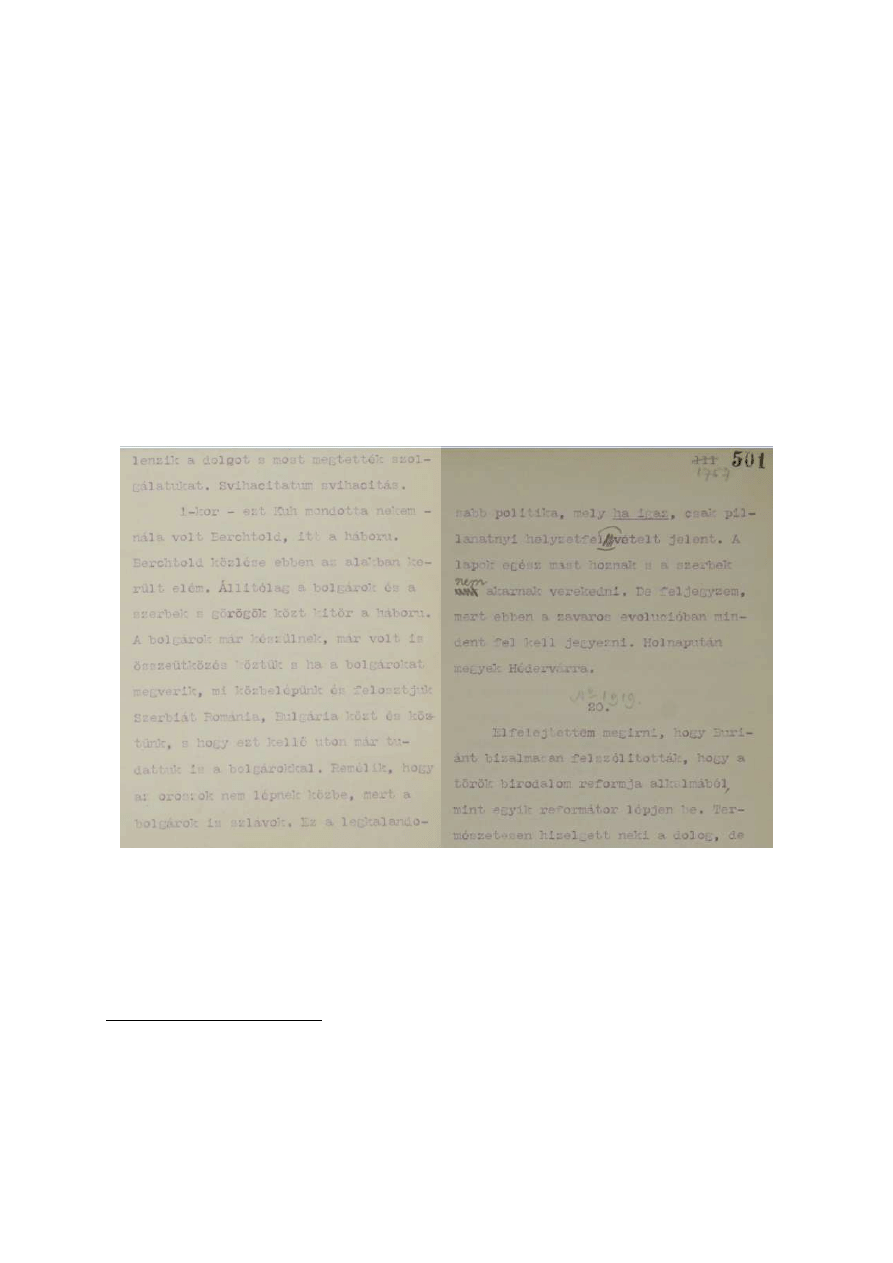 lenzik a dolgot s most megtették szol-
gálatukat. Svihacitatum svihacitás.
1-kor - ezt Kuh mondotta nekem -
nála volt Berchtold, itt a háboru.
Berchtold közlése ebben az alakban ke-
rült elém. Állitólag a bolgárok és a
szerbek s görögök közt kitör a háboru.
A bolgárok már készülnek, már volt is
összeütközés köztük s ha a bolgárokat
megverik, mi közbelépünk és felosztjuk
Szerbiát Románia, Bulgária közt és köz-
tünk, s hogy ezt kellő uton már tu-
dattuk is a bolgárokkal. Remélik, hogy
az oroszok nem lépnek közbe, mert a
bolgárok is szlávok. Ez a legkalando-
111 501
1757
sabb politika, mely ha igaz, csak pil-
lanatnyi helyzetfelvételt jelent. A
lapok egész mást hoznak s a szerbek
nem
akarnak verekedni. De feljegyzem,
mert ebben a zavaros evolucióban min-
dent fel kell jegyezni. Holnapután
megyek Hédervárra.
20.
Elfelejtettem megirni, hogy Buri-
ánt bizalmasan felszólitották, hogy a
török birodalom reformja alkalmából,
mint egyik reformátor lépjen be. Ter-
mészetesen hizelgett neki a dolog, de